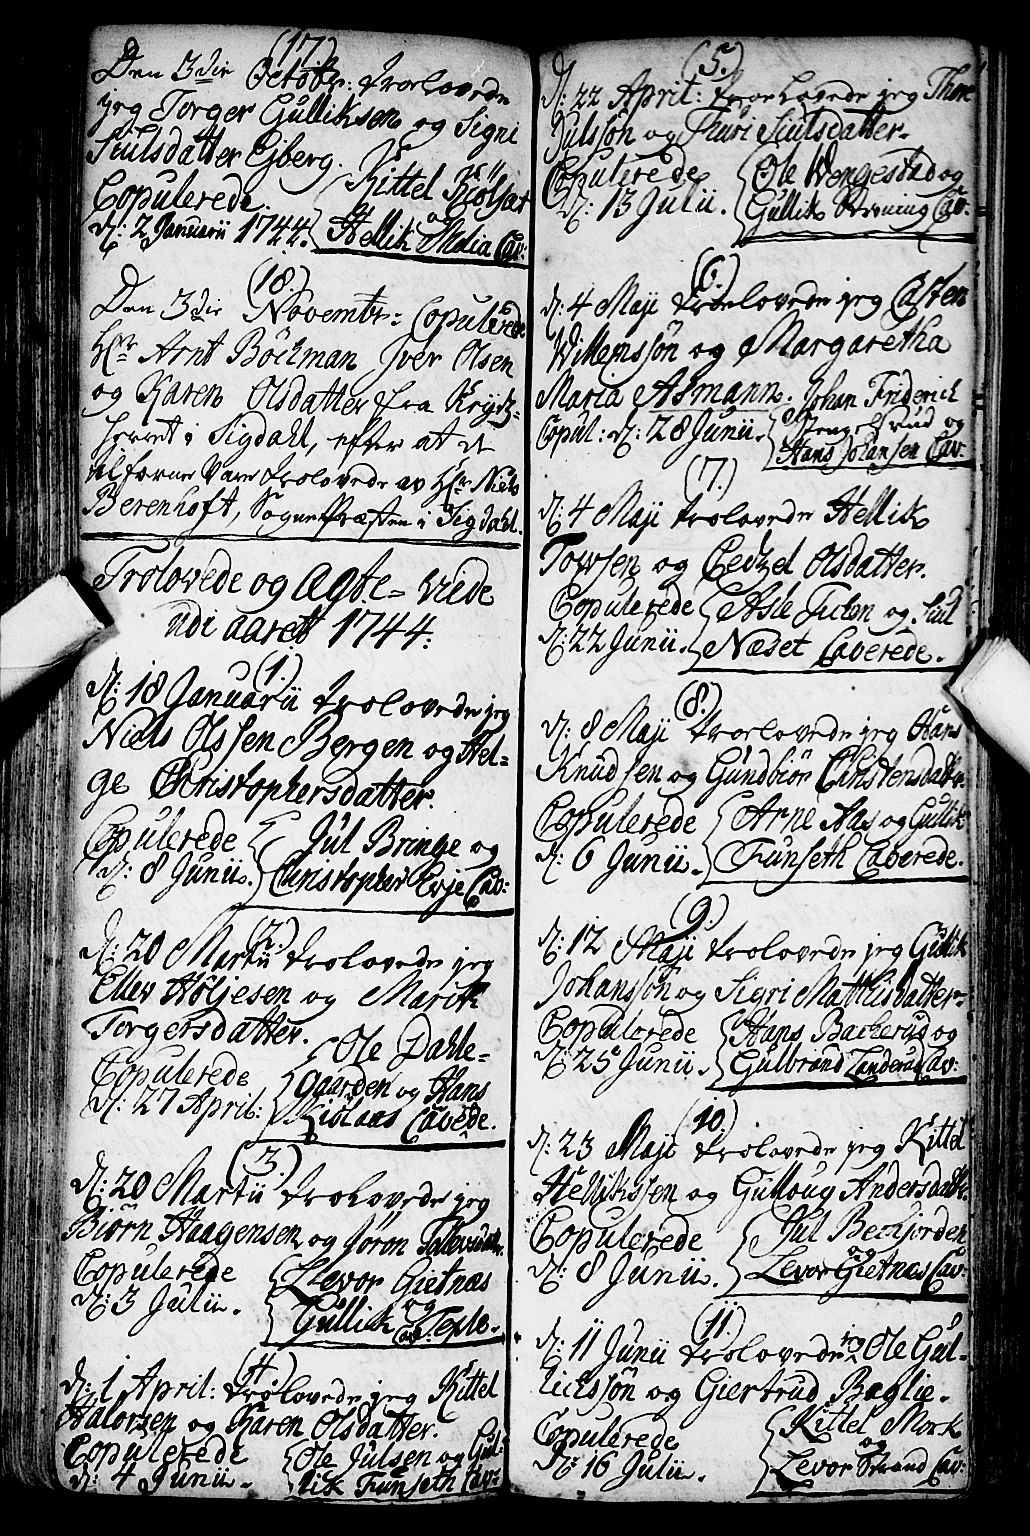 (17)
Den 3die Octobr: trolovede
jeg Torger Gulliksen og Signi
Siulsdatter Ejberg.
Copulerede
d: 2 Januarii 1744.
Kittel Kiölsat
og
Hellik Molia Cav:
(18.)
Den 3die Novembr: Copulerede
Hr Arnt Böckman Iver Olsen
og Karen Olsdatter fra Krydz-
herret i Sigdahl, efter at de
tilforne vare trolovede av Hr Niels
Berenhoft, Sognepræsten i Sigdahl.
Trolovede og ægte-viede
udi aaret 1744.
(1.)
d: 18 Januarii trolovede jeg
Niels Olssen Bergen og Hel-
ge Christophersdatter.
Copulerede
d: 8 Junii.
Jul Bringe og
Christopher Evje Cav:
(2.)
d: 20 Martii trolovede jeg
Ellev Höljesen og Marith
Torgersdatter.
Copulerede
d: 27 April:
Ole Dahle-
gaarden og Hans
Kiölaas Cavede.
(3.)
d: 20 Martii trolovede jeg
Biörn Haagensen og Jörön Tolevsdattr.
Copulerede
d: 3 Julii.
Levor Gietnæs
og
Gullik Teple. Cav:
(4.)
d: 1 April: trolovede jeg Kittel
Halorsen og Karen Olsdatter.
Copulerede
d: 4 Junii.
Ole Julsen og Gul-
lik Funseth Cav:
(5.)
d: 22 April: trolovede jeg Thore
Julssön og Thuri Siulsdatter.
Copulerede
d: 13 Julii.
Ole Wengestad og
Gullik Cav:
(6.)
d: 4 Maji trolovede jeg Casten
Willemssön og Margaretha
Maria Asmann.
Copul: d: 28 Junii.
Johan Friderich
Stengelsrud og
Hans Johansen Cav:
(7.)
d: 4 Maji trolovede Hellik
Towsen og Cedzel Olsdatter.
Copulerede
d: 22 Junii.
Asle og
Næset Caverede.
(8.)
d: 8 Maji trolovede jeg Hans
Knudsen og Gundbiör Christensdattr.
Copulerede
d: 6 Junii.
Arne Aas og Gullik
Funseth Caverede.
(9.)
d: 12 Maji trolovede jeg Gullik
Johanssön og Sigri Matthisdatter.
Copulerede
d: 25 Junii.
Hans Backerud og
Gulbrand Landerud Cav:
(10.)
d: 23 Maji trolovede jeg Kittel
Hellikssen og Gulloug Andersdattr.
Copulerede
d: 8 Junii.
Jul Beckjorden
og
Levor Gietnæs Cav:
(11.)
d: 11 Junii trolovede jeg Ole Gul-
lickssön og Giertrud Baglie.
Copulerede
d: 16 Julii.
Kittel Mork
og
Levor Strand Cav: